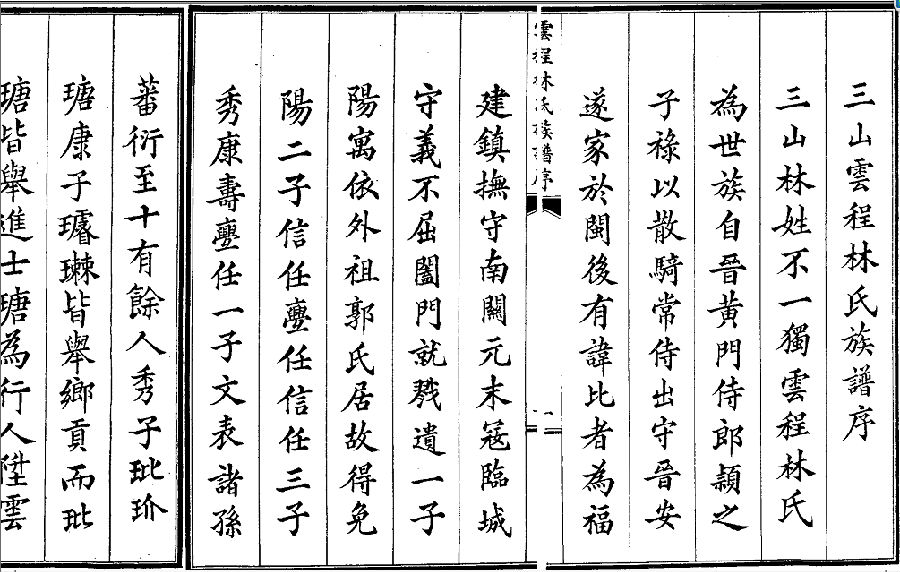 三山雲程林氏族譜序
三山林姓不一獨雲程林氏
為世族自晉黃門侍郎頴之
子祿以散騎常侍出守晉安
遂家於閩後有諱比者為福
雲程林氏族譜序
一
建鎮撫守南關元末冦臨城
守義不屈闔門就戮遺一子
陽寓依外祖郭氏居故得免
陽二子信任亹任信任三子
秀康壽亹任一子文表諸孫
蕃衍至十有餘人秀子玭玠
瑭康子璿皆舉鄉貢而玭
瑭皆舉進士瑭為行人陞雲